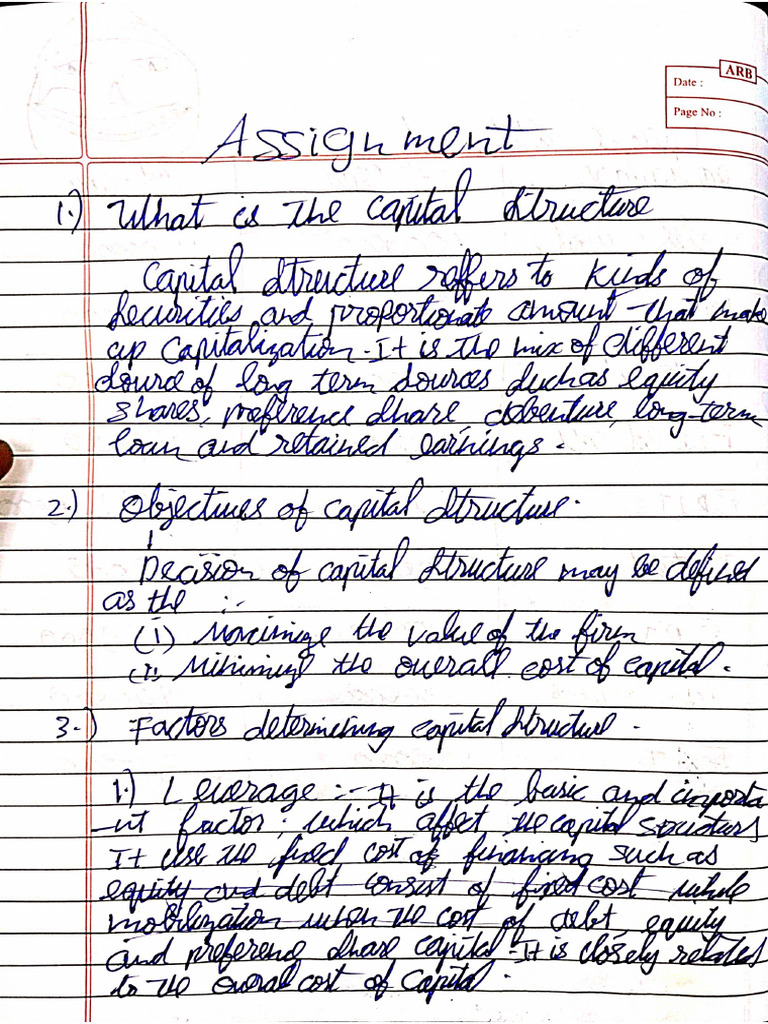 ARB
Date :
Page No :
Assignment
1.) What is the capital structure
Capital structure reffers to kinds of
securities and proportionate amount that make
up capitalization. It is the mix of different
source of long term sources such as equity
shares, preference share, debenture, long-term
loan and retained earnings.
2.) Objectives of capital structure.
Decision of capital structure may be defined
as the :-
(i) Maximize the value of the firm
(ii) Minimize the overall cost of capital.
3.) Factors determining capital structure.
1.) Leverage :- It is the basic and importa
-nt factor, which affect the capital structure
It use the fixed cost of financing such as
equity and debt consist of fixed cost while
mobilization when the cost of debt equity
and preference share capital. It is closely related
to the overall cost of capital.